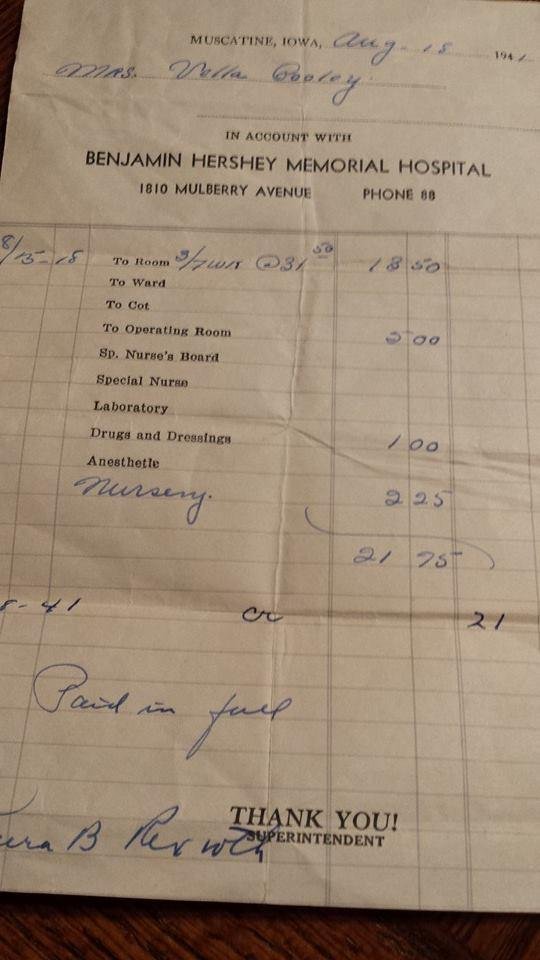 MUSCATINE, IOWA, Aug - 18 1941
Mrs. Vella Cooley
IN ACCOUNT WITH
BENJAMIN HERSHEY MEMORIAL HOSPITAL
1810 MULBERRY AVENUE PHONE 88
8/15-18 To Room 3/7 wk @ 31 50 13 50
To Ward
To Cot
To Operating Room 5 00
Sp. Nurse's Board
Special Nurse
Laboratory
Drugs and Dressings 1 00
Anesthetic
Nursery. 2 25
21 75
8-41 cr 21
Paid in full
THANK YOU!
B Rexroth
SUPERINTENDENT